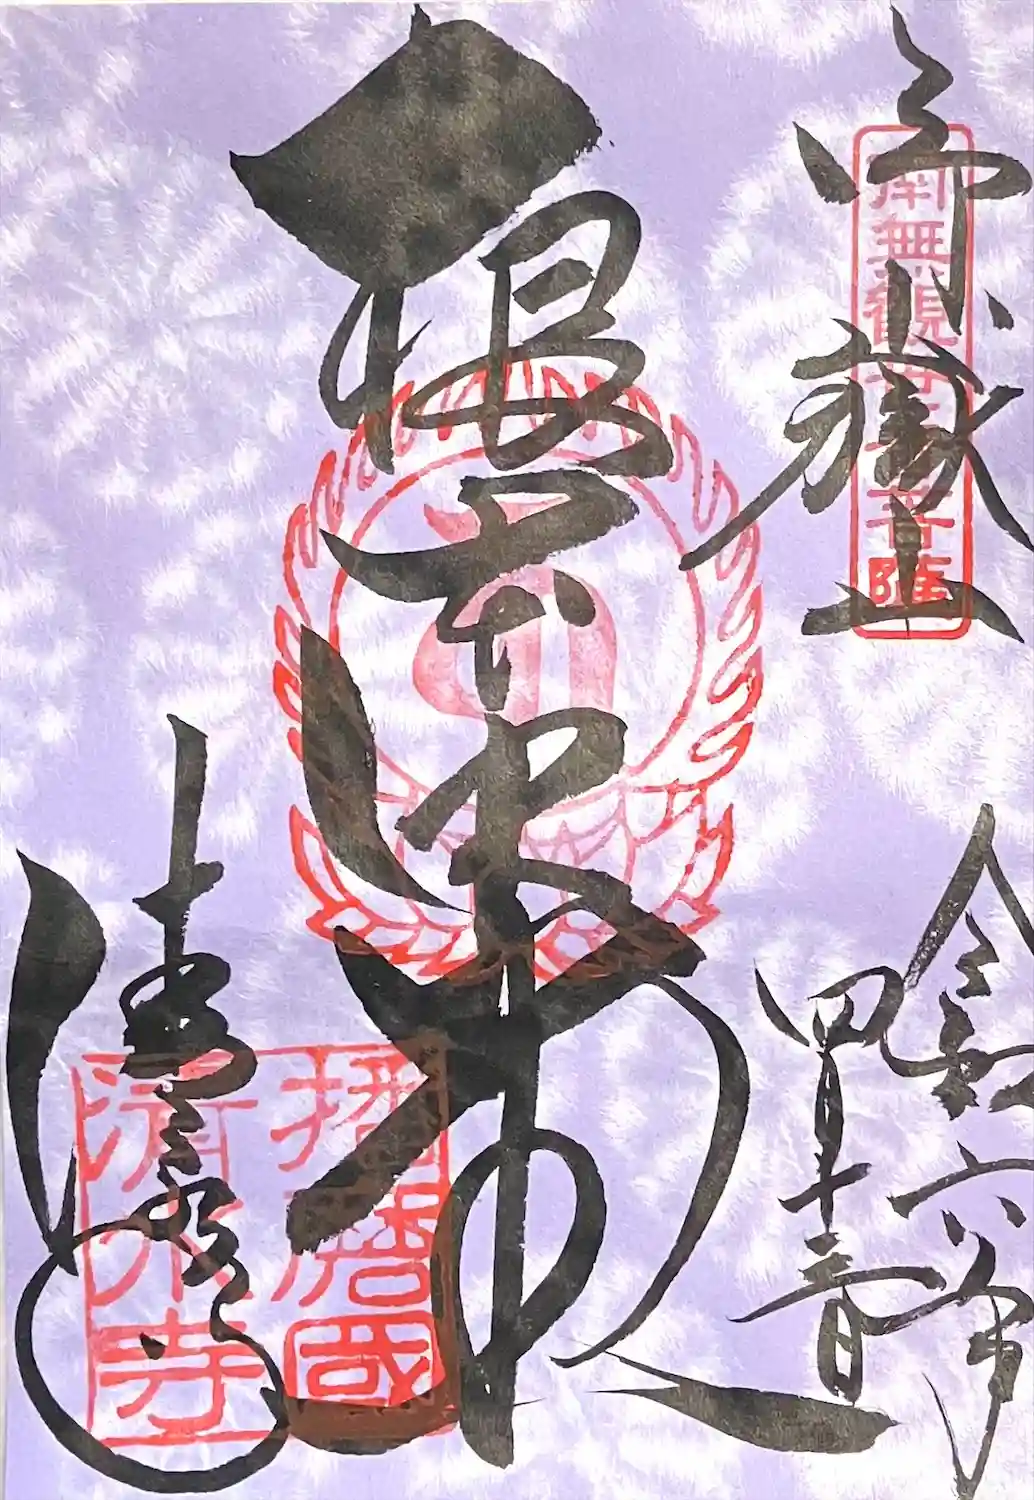 御嶽山
南無観世音菩薩
令和六年
四月十
日
根本中堂
清水寺
播磨國
清水寺